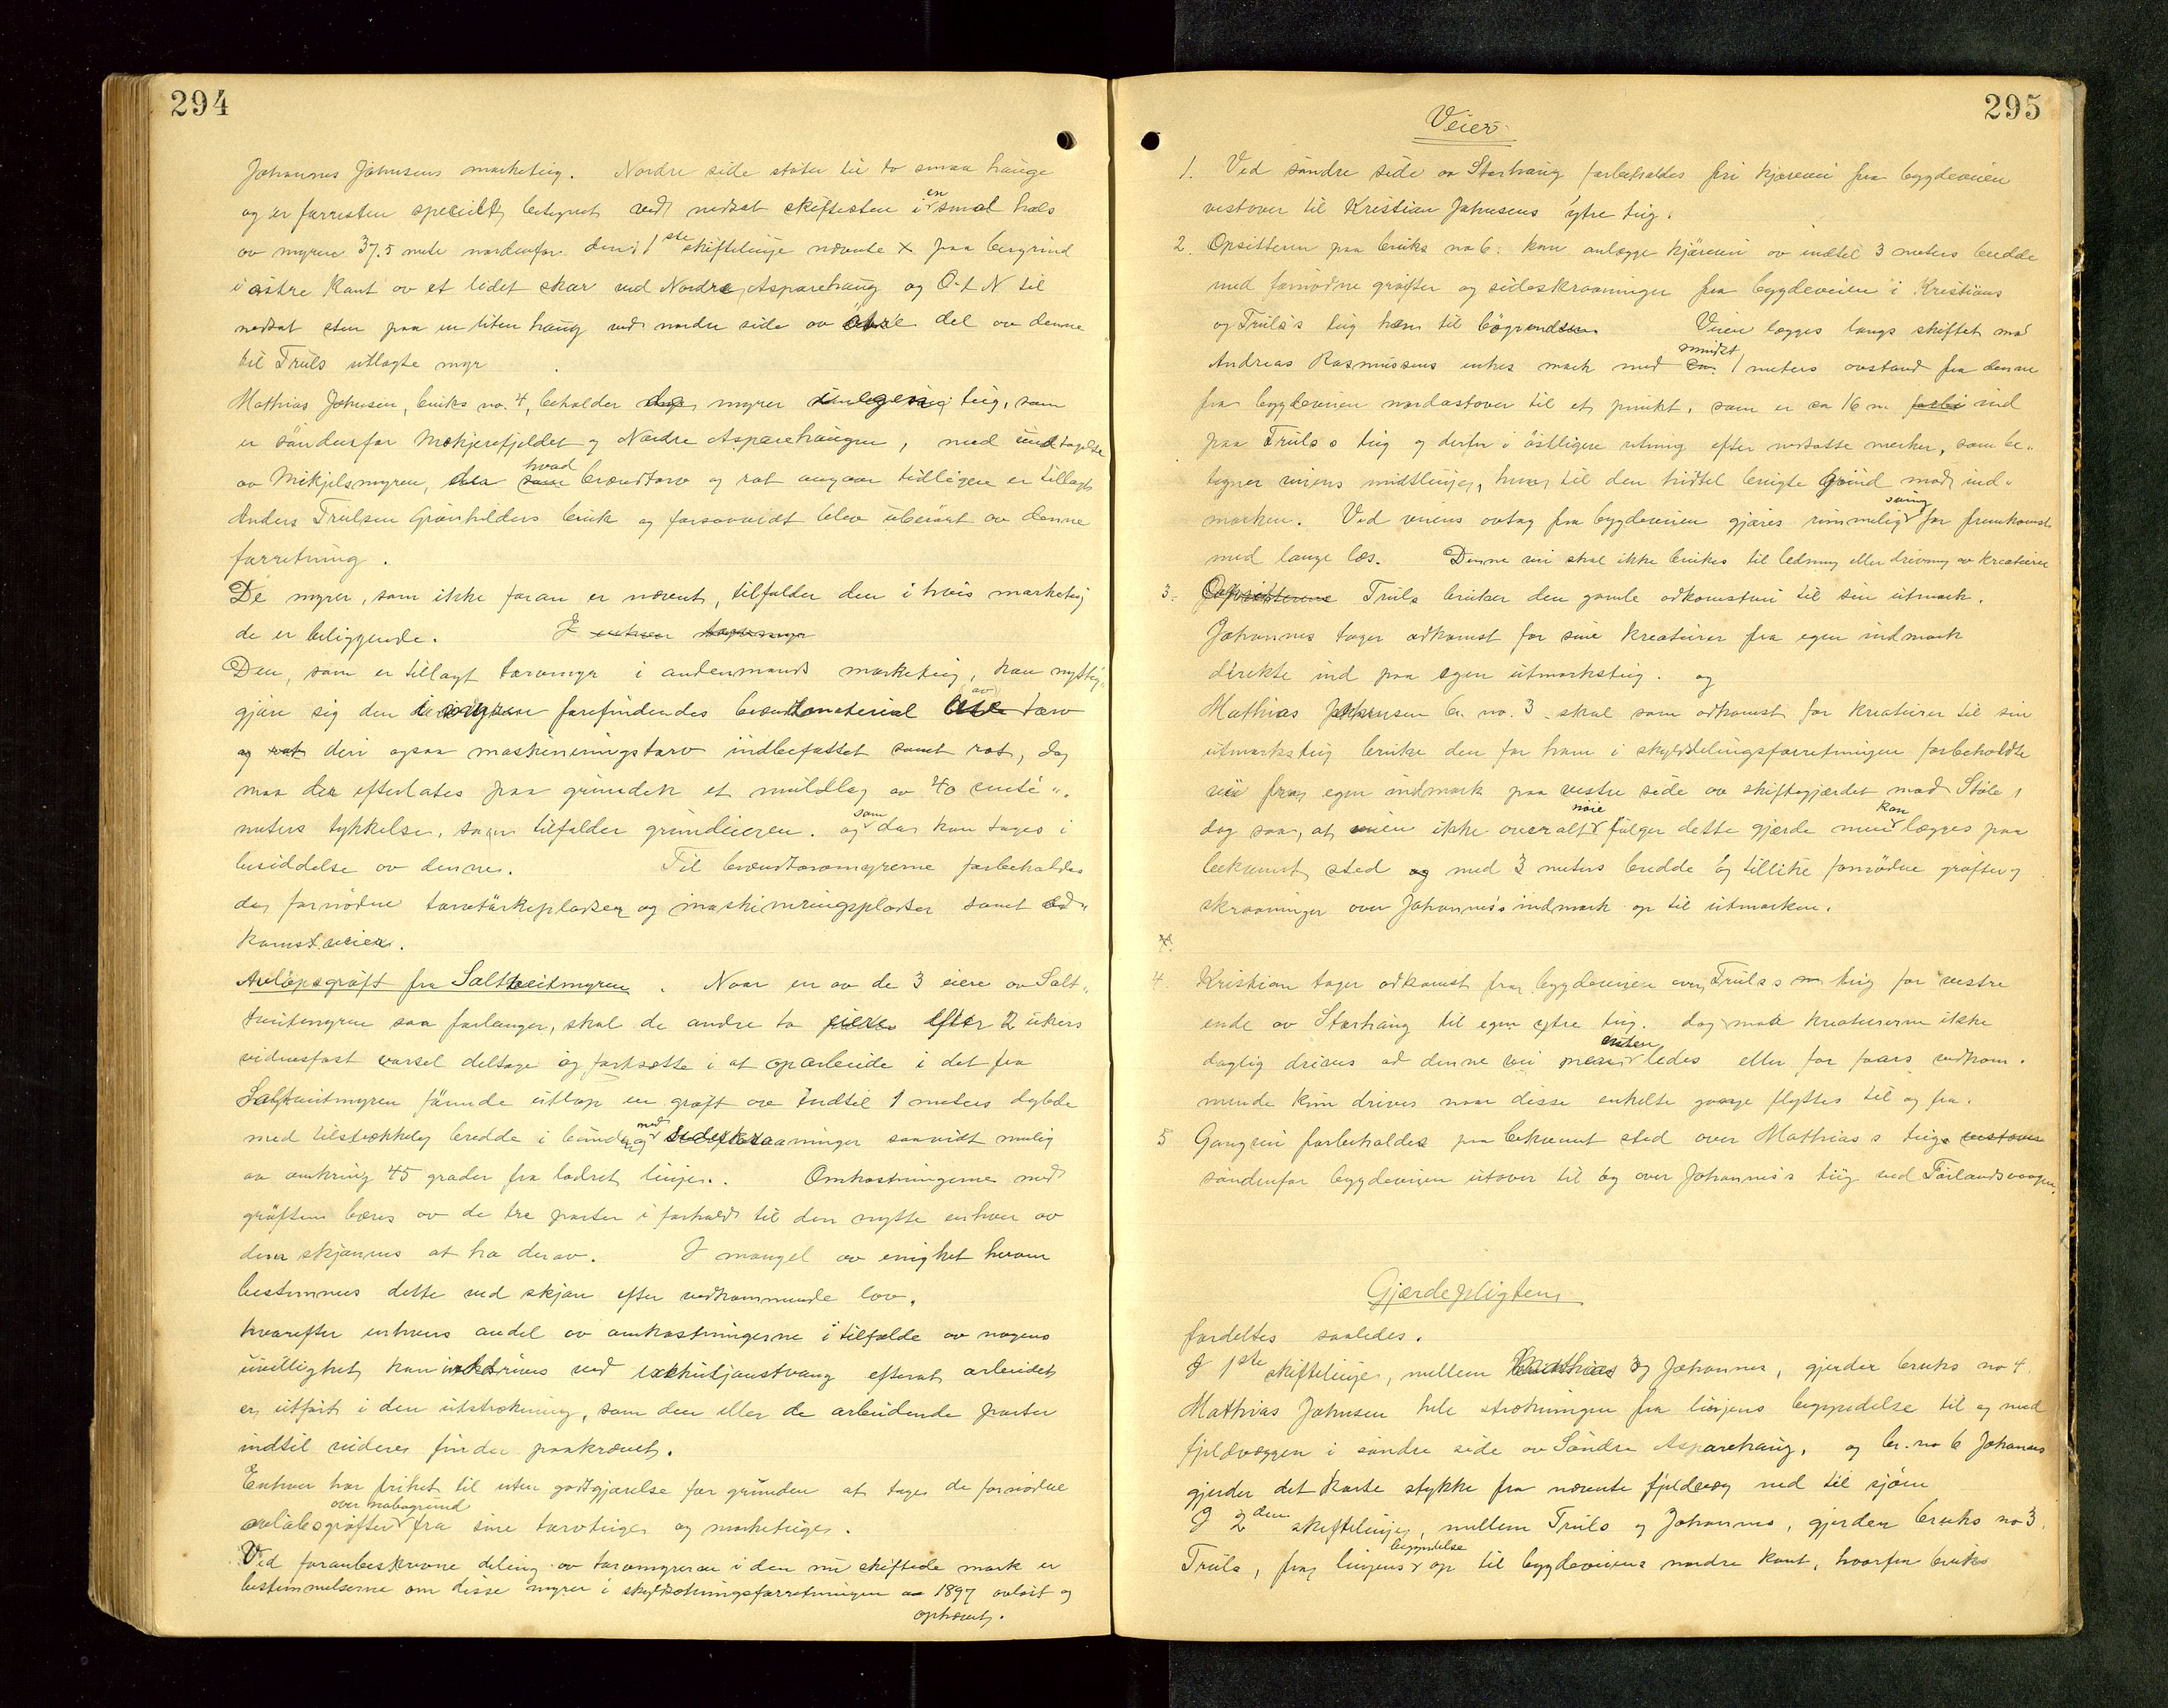 294
Johannes Johnsens marketeig. Nordre side støter til to smaa hauge
og er forresten specielt betegnet ved nedsat skiftesten i en smal hals
av myren 37.5 mete nordenfor den i 1ste skiftelinje nævnte x paa bergrind
i østre kant av et lidet skar ved Nordre Asparehaug og Ö-L N til
nedsat sten paa en liten haug ved nordre side av del av denne
til Truls utlagte myr
Mathias Johnsen, bruks no. 4, beholder myrer teig, som
er söndenfor Mekjerefjeldet og Nordre Asparehaugen, med undtagelse
av Mikjelsmyren, hvad brændtorv og rot angaar tidligere er tillagt
Anders Trulsen Grönfelders bruk og forsaavidt blev uberört av denne
forretning.
De myrer, som ikke foran er nævnt, tilfalder den i hvis marketeig
de er beliggende. I enhver
Den, som er tillagt torvmyr i andenmands marketeig, kan nyttig-
gjöre sig den forefindendes brændematerial av torv
og rot deri ogsaa maskineringstorv indbefattet samt rot, dog
maa der efterlates paa grunden et muldlag av 40 centi-
meters tykkelse, som tilfalder grundeieren og som da kan tages i
besiddelse av denne. Til brændtorvmyrerne forbeholdes
de fornødne torvtörkepladser og maskineringspladser samt ad-
komstveier.
Avlöpsgröft fra Salttveitmyren. Naar en av de 3 eiere av Salt-
tveitmyren saa forlanger, skal de andre to eiere efter 2 ukers
vidnesfast varsel deltage og fortsætte i at oparbeide i det fra
Salttveitmyren fÿnnde utlöp en gröft av indtil 1 meters dybde
med tilstrækkelig bredde i bund og med sideskraaninger saavidt mulig
av omkring 45 grader fra lodret linje. Omkostningerne med
gröften bæres av de tre parter i forhold til den nytte enhver av
dem skjönnes at ha derav. I mangel av enighet herom
bestemmes dette ved skjön efter vedkommende lov,
hvorefter enhvers andel av omkostningerne i tilfælde av nogens
uvillighet kan inddrives ved exekutjonstvang efterat arbeidet
er utfört i den utstrækning, som den eller de arbeidende parter
indtil videre finder paakrævet.
Enhver har frihet til uten godtgjörelse for grunden at tage de fornödne
avlöbsgröfter over nabogrund fra sine torvteiger og marketeiger.
Ved foranbeskrevne deling av torvmyrerne i den nu skiftede mark er
bestemmelserne om disse myrer i skyldsætningsforretningen av 1897 avløst og
ophævet.
295
Veier
1. Ved söndre side av Storhaug forbeholdes fri kjörevei fra bygdeveien
vestover til Kristian Johnsens ytre teig.
2. Opsitteren paa bruks no 6. kan anlægge kjörevei av indtil 3 meters bredde
med fornödne gröfter og sideskraaninger fra bygdeveien i Kristians
og Truls's teig hen til bögrinden. Veien lægges langs skiftet mod
Andreas Rasmussens enkes mark med mindst 1 meters avstand fra denne
fra bygdeveien nordostover til et punkt, som er ca 16 m. forbi ind
paa Truls's teig og derfra i östligere retning efter nedsatte merker, som be-
tegner veiens midtlinje, hen til den hidtil brugte grind mod ind-
marken. Ved veiens avtag fra bygdeveien gjöres rimmelig sving for fremkomst
med lange læs. Denne vei skal ikke brukes til ledning eller drivning av kreaturer
3. Opsitterne Truls bruker den gamle adkomstvei til sin utmark.
Johannes tager adkomst for sine kreaturer fra egen indmark
direkte ind paa egen utmarksteig. og
Mathias Johnsen br. no. 3. skal som adkomst for kreaturer til sin
utmarksteig bruke den for ham i skylddelingsforretningen forbeholdte
vei fra egen indmark paa vestre side av skiftesgjærdet mod Ståle,
dog saa, at veien ikke overalt nöie fölger dette gjærde men kan lægges paa
bekvemt sted og med 3 meters bredde og tillike fornödne gröfter og
skraaninger over Johannes's indmark op til utmarken.
4. Kristian tager adkomst fra bygdeveien over Truls's teig for vestre
ende av Storhaug til egen ytre teig. dog maa kreaturerne ikke
daglig drives ad denne vei men enten ledes eller for faars vedkom-
mende kun drives naar disse enkelte gange flyttes til og fra.
5 Gangvei forbeholdes paa bekvemt sted over Mathias's teig vestover
söndenfor bygdeveien utover til og over Johannes's teig ved Förlandsvaagen.
Gjærdepligten
fordeltes saaledes.
I 1ste skiftelinje, mellem Mathias og Johannes, gjerder bruks no 4.
Mathias Johnsen hele strækningen fra linjens begyndelse til og med
fjeldvæggen i söndre side av Söndre Asparehaug, og br. no 6 Johannes
gjerder det korte stykke fra nævnte fjeldvæg ned til sjöen
I 2den skiftelinje, mellem Truls og Johannes, gjerder bruks no 3.
Truls, fra linjens begyndelse op til bygdeveiens nordre kant, hvorfra bruks